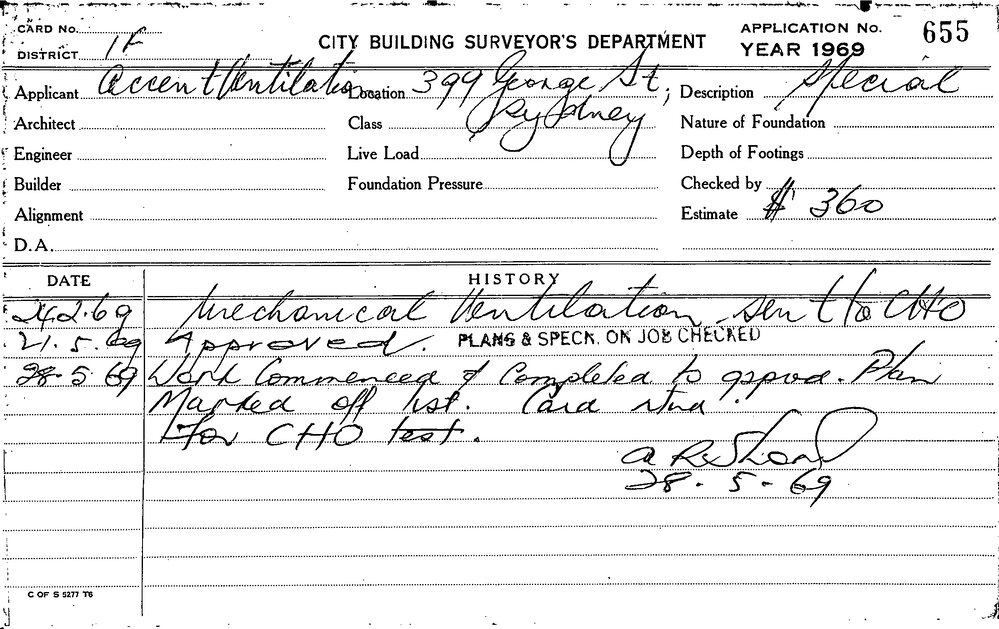 CARD No.
DISTRICT 1F
CITY BUILDING SURVEYOR'S DEPARTMENT
APPLICATION No. 655
YEAR 1969
Applicant Accent Ventilation Location 399 George St, Description Special
Architect Class Sydney Nature of Foundation
Engineer Live Load Depth of Footings
Builder Foundation Pressure Checked by
Alignment Estimate $ 360
D.A.
DATE HISTORY
24.2.69 Mechanical Ventilation sent to CHO
21.5.69 Approved. PLANS & SPECN. ON JOB CHECKED
28.5.69 Work Commenced & Completed to approd. Plan
Marked off list. Card rtnd.
For CHO test.
28-5-69
C OF S 5277 T6